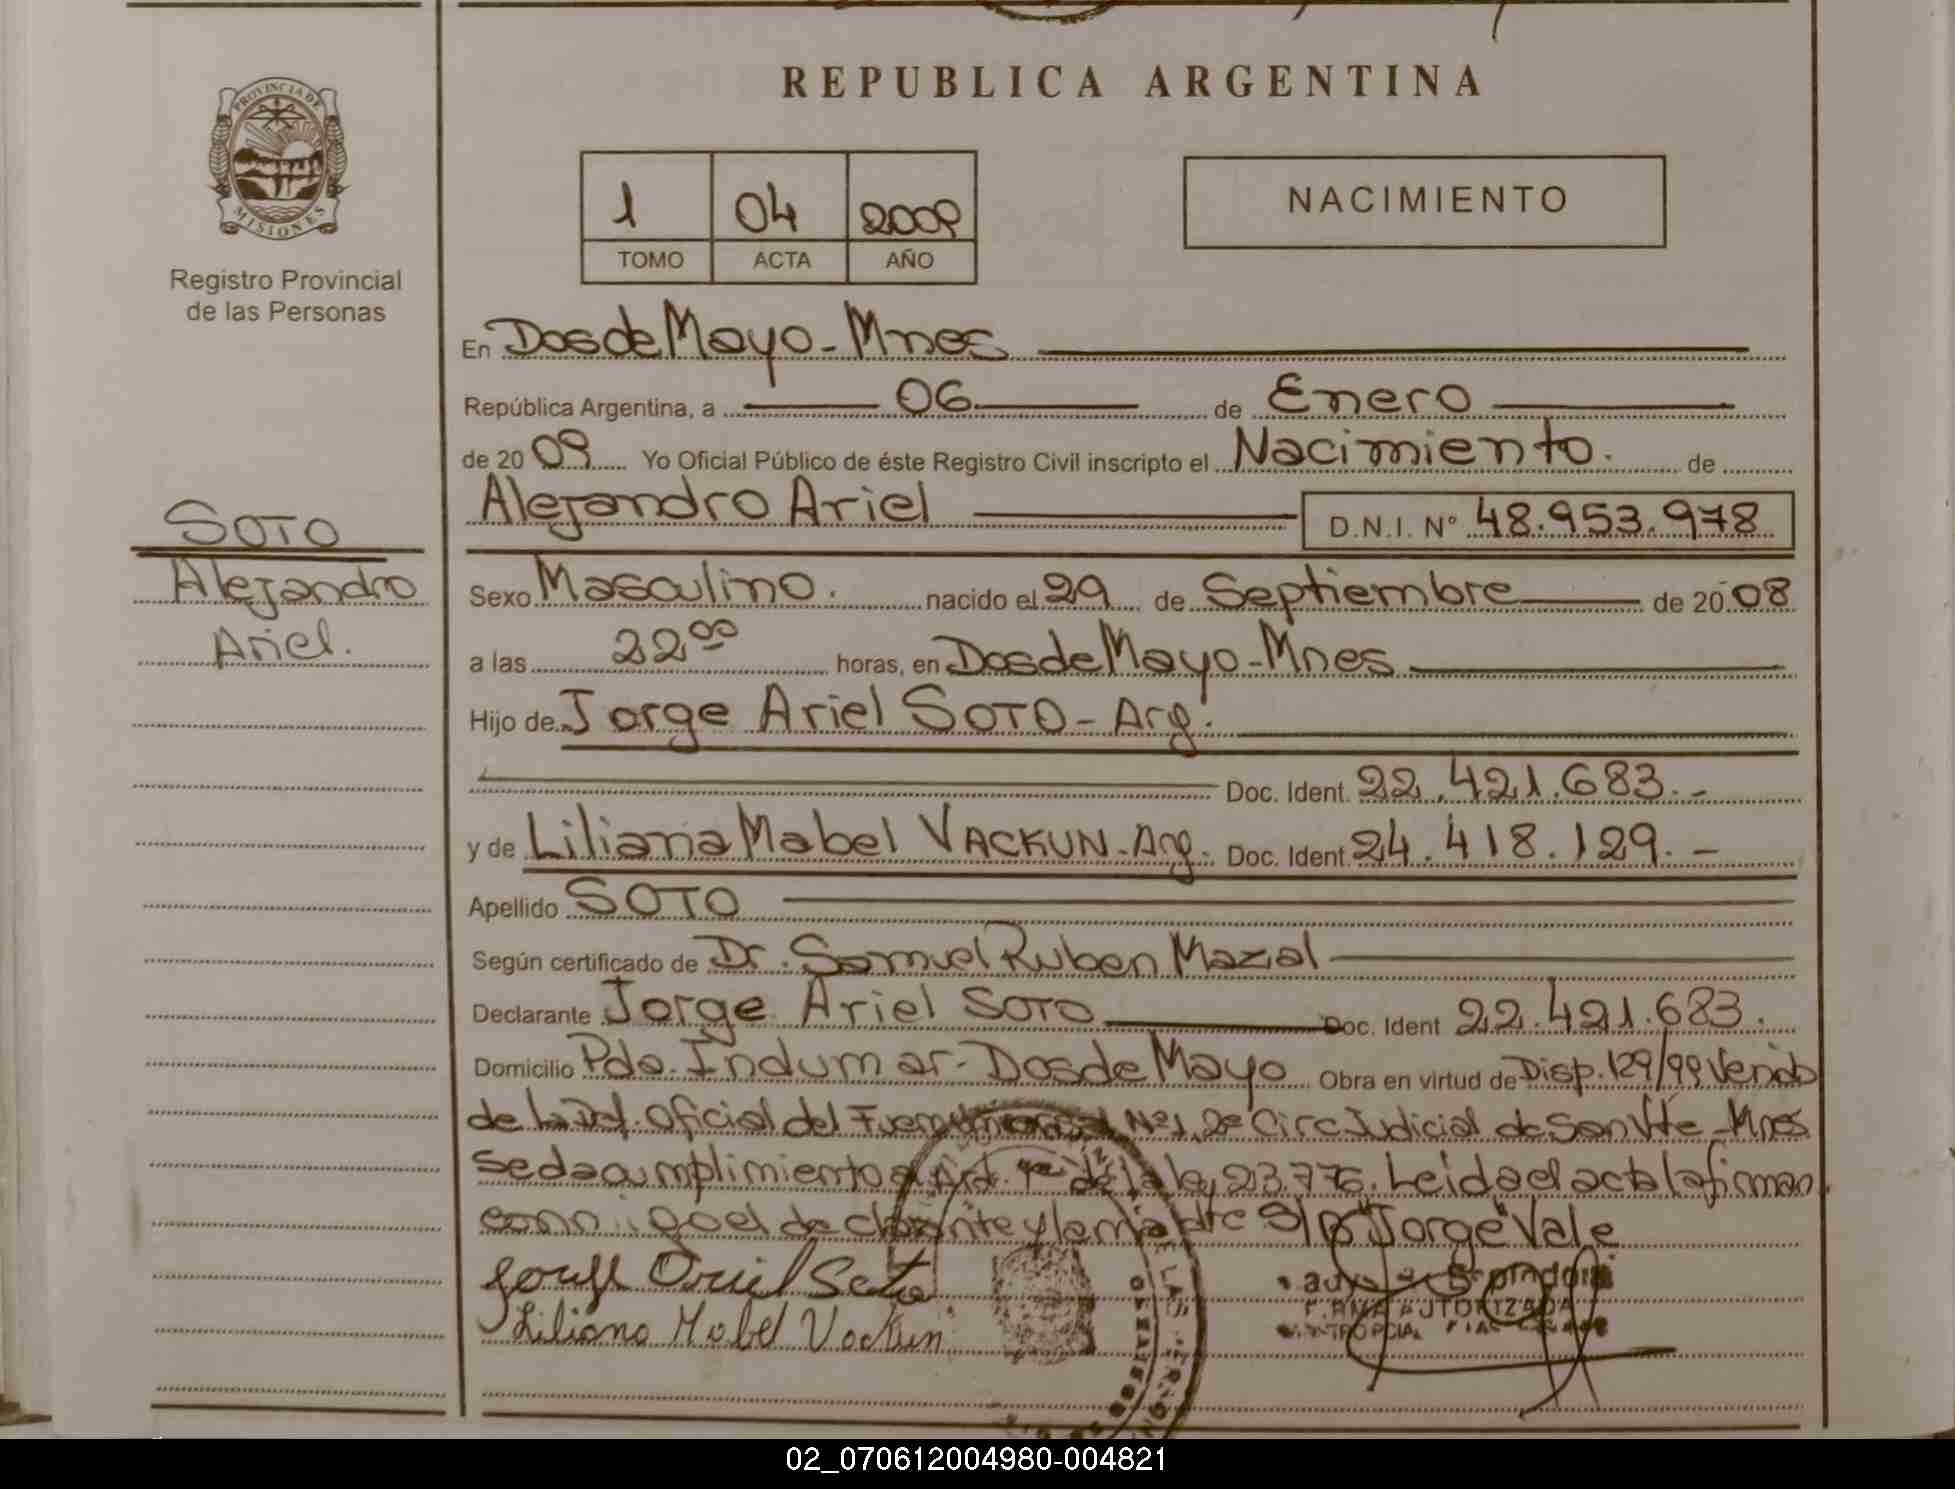 REPUBLICA ARGENTINA
PROVINCIA DE
MISIONES
Registro Provincial
de las Personas
1 04 2009
TOMO ACTA AÑO
NACIMIENTO
SOTO
Alejandro
Ariel.
En Dos de Mayo - Mnes
República Argentina, a 06 de Enero
de 2009 Yo Oficial Público de éste Registro Civil inscripto el Nacimiento. de
Alejandro Ariel D.N.I. N° 48.953.978
Sexo Masculino. nacido el 29 de Septiembre de 2008
a las 22 00 horas, en Dos de Mayo - Mnes
Hijo de Jorge Ariel SOTO - Arg.
Doc. Ident. 22.421.683.-
y de Liliana Mabel VACKUN - Arg. Doc. Ident. 24.418.129.-
Apellido SOTO
Según certificado de Dr. Samuel Ruben Mazal
Declarante Jorge Ariel SOTO Doc. Ident 22.421.683.
Domicilio Pdo. Indumar - Dos de Mayo Obra en virtud de Disp. 129/99 Venido
de la Def. Oficial del Nº1, 2º Circ Judicial de San Vte - Mnes
Se da cumplimiento a Art. de la ley 23.776. Leida el acta la firman
el declarante y la madre S/D "Jorge" Vale
Jorge Ariel Soto
Liliana Mabel Vackun
FIRMA AUTORIZADA
02_070612004980-004821